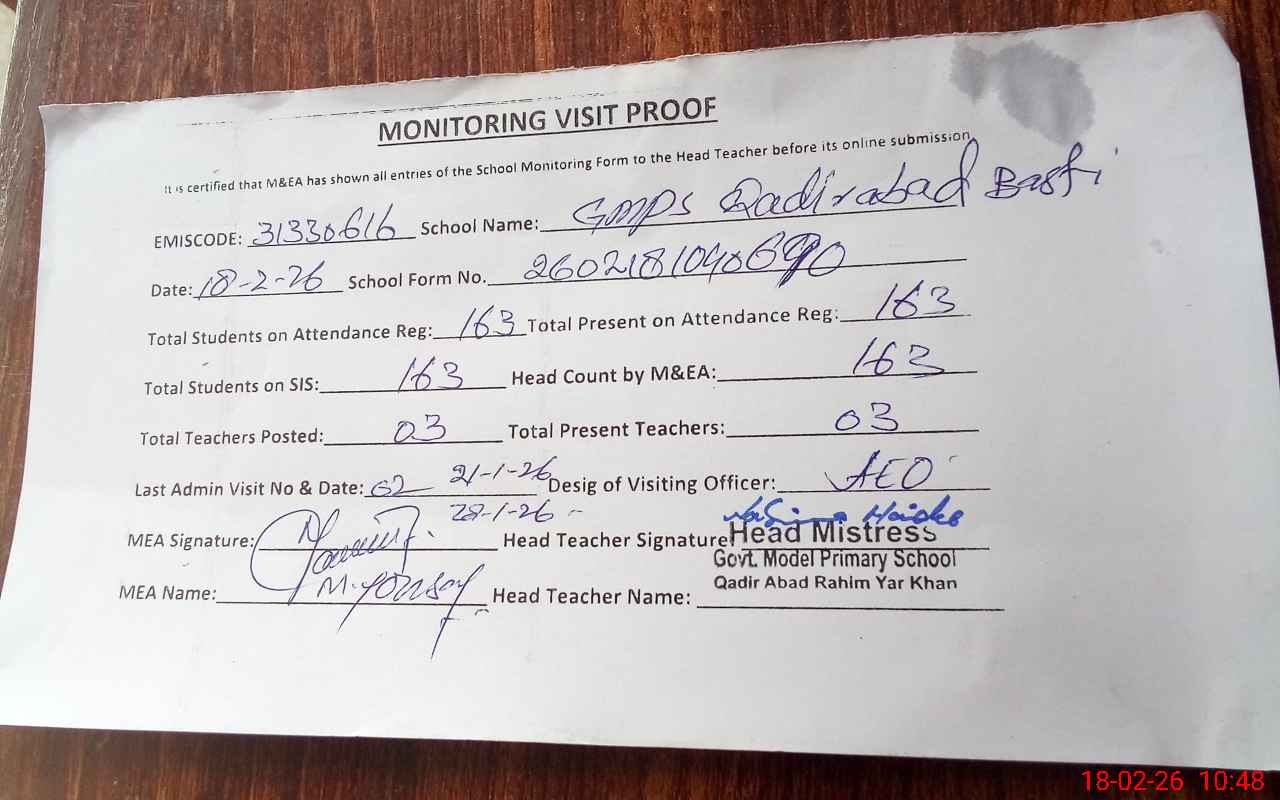 MONITORING VISIT PROOF
It is certified that M&EA has shown all entries of the School Monitoring Form to the Head Teacher before its online submission.
EMISCODE: 31330616 School Name: GMPS Qadirabad Basti
Date: 18-2-26 School Form No.
Total Students on Attendance Reg: 163 Total Present on Attendance Reg: 163
Total Students on SIS: 163 Head Count by M&EA: 163
Total Teachers Posted: 03 Total Present Teachers: 03
Last Admin Visit No & Date: 02 21-1-26 Desig of Visiting Officer: AEO
28-1-26
MEA Signature: Head Teacher Signature
Head Mistress
Govt. Model Primary School
Qadir Abad Rahim Yar Khan
MEA Name: Head Teacher Name:
18-02-26 10:48